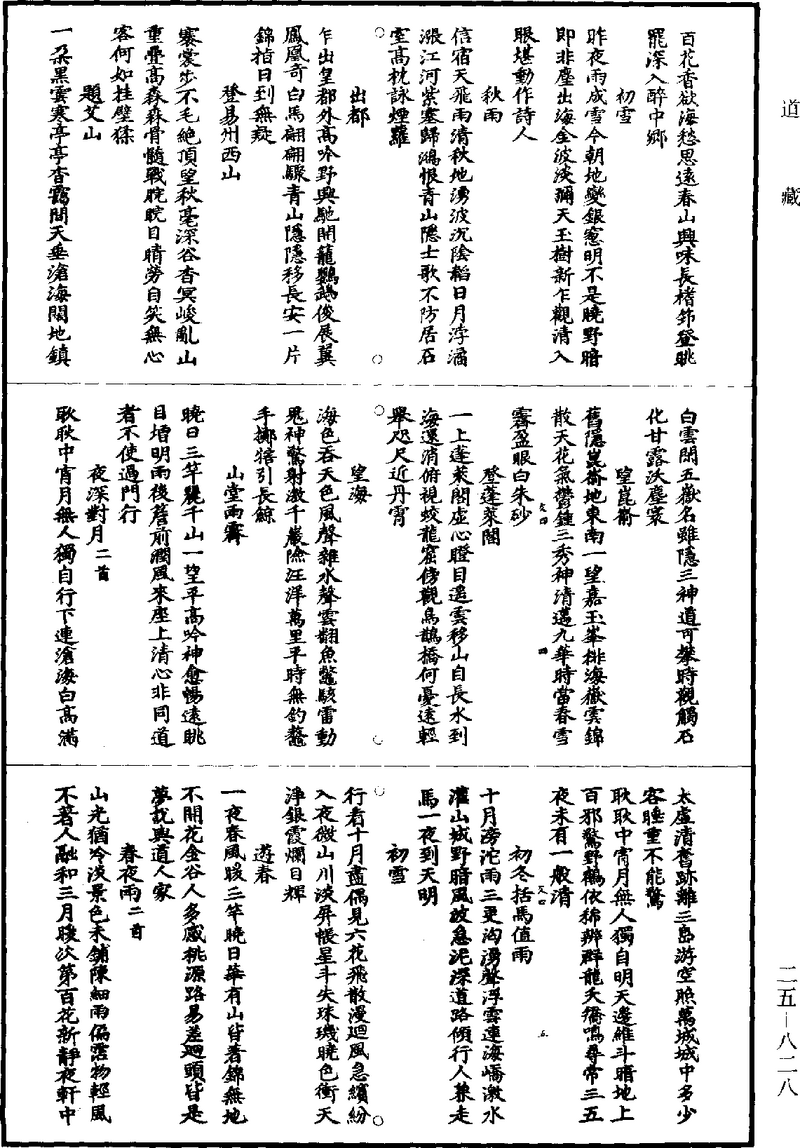 道藏
百花香欲海愁思遠春山興味長榰筇登眺
罷深入醉中鄉
初雪
昨夜雨成雪今朝地變銀窻明不是曉野暗
即非塵出海金波淡彌天玉樹新乍觀清入
眼堪動作詩人
秋雨
信宿天飛雨清秋地湧波沉陰韜日月浡潏
漲江河紫塞歸鴻恨青山隱士歌不防居石
室高枕詠煙蘿
出都
乍出皇都外高吟野興馳開籠鸚鵡俊展翼
鳳凰奇白馬翩翩驟青山隱隱移長安一片
錦指日到無疑
登易州西山
褰裳步不毛絕頂望秋毫深谷杳冥峻亂山
重疊高森森骨髓戰睆睆目睛勞自笑無心
客何如挂壁猱
題艾山
一朶黑雲寒亭亭杳靄間天垂滄海闊地鎮
白雲閑五嶽名雖隱三神道可攀時觀觸石
化甘露沃塵寰
望崑崳
舊隱崑崳地東南一望嘉玉峯排海嶽雲錦
散天花氣鬱鍾三秀神清邁九華時當春雪
霽盈眼白朱砂
登蓬萊閣
一上蓬萊閣虛心瞪目遥雲移山自長水到
海還消俯視蛟龍窟傍觀烏鵲橋何憂遠輕
舉咫尺近丹霄
望海
海色吞天色風聲雜水聲雲翻魚鼈駭雷動
鬼神驚射激千巖險汪洋萬里平時無釣鼇
手擲犗引長鯨
山堂雨霽
曉日三竿麗千山一望平高吟神愈暢遠眺
目增明雨後簷前潤風來座上清心非同道
者不使過門行
夜深對月二首
耿耿中宵月無人獨自行下連滄海白高滿
太虛清舊跡離三島游空照萬城城中多少
客睡重不能驚
耿耿中宵月無人獨自明天邊維斗暗地上
百邪驚野鶴依稀辨群龍夭矯鳴尋常三五
夜未有一般清
初冬括馬值雨
十月滂沱雨三更沟湧聲浮雲連海嶠激水
灌山城野暗風波急泥深道路傾行人兼走
馬一夜到天明
初雪
行看十月盡偶見六花飛散漫迴風急繽紛
入夜微山川淡屏帳星斗失珠璣曉色衝天
淨銀霞爛日輝
遊春
一夜春風晐三竿曉日華有山皆著錦無地
不開花金谷人多感桃源路易差迴頭皆是
夢說與道人家
春夜雨二首
山光猶冷淡景色未鋪陳細雨偏霑物輕風
不著人融和三月睃次第百花新靜夜軒中
二五－八二八